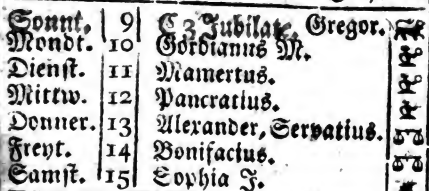 Sonnt. 9 C 3 Jubilate. Gregor.
Mondt. 10 Gordianus M.
Dienst. 11 Mamertus.
Mittw. 12 Pancratius.
Donner. 13 Alexander, Servatius.
Freyt. 14 Bonifacius.
Samst. 15 Sophia J.